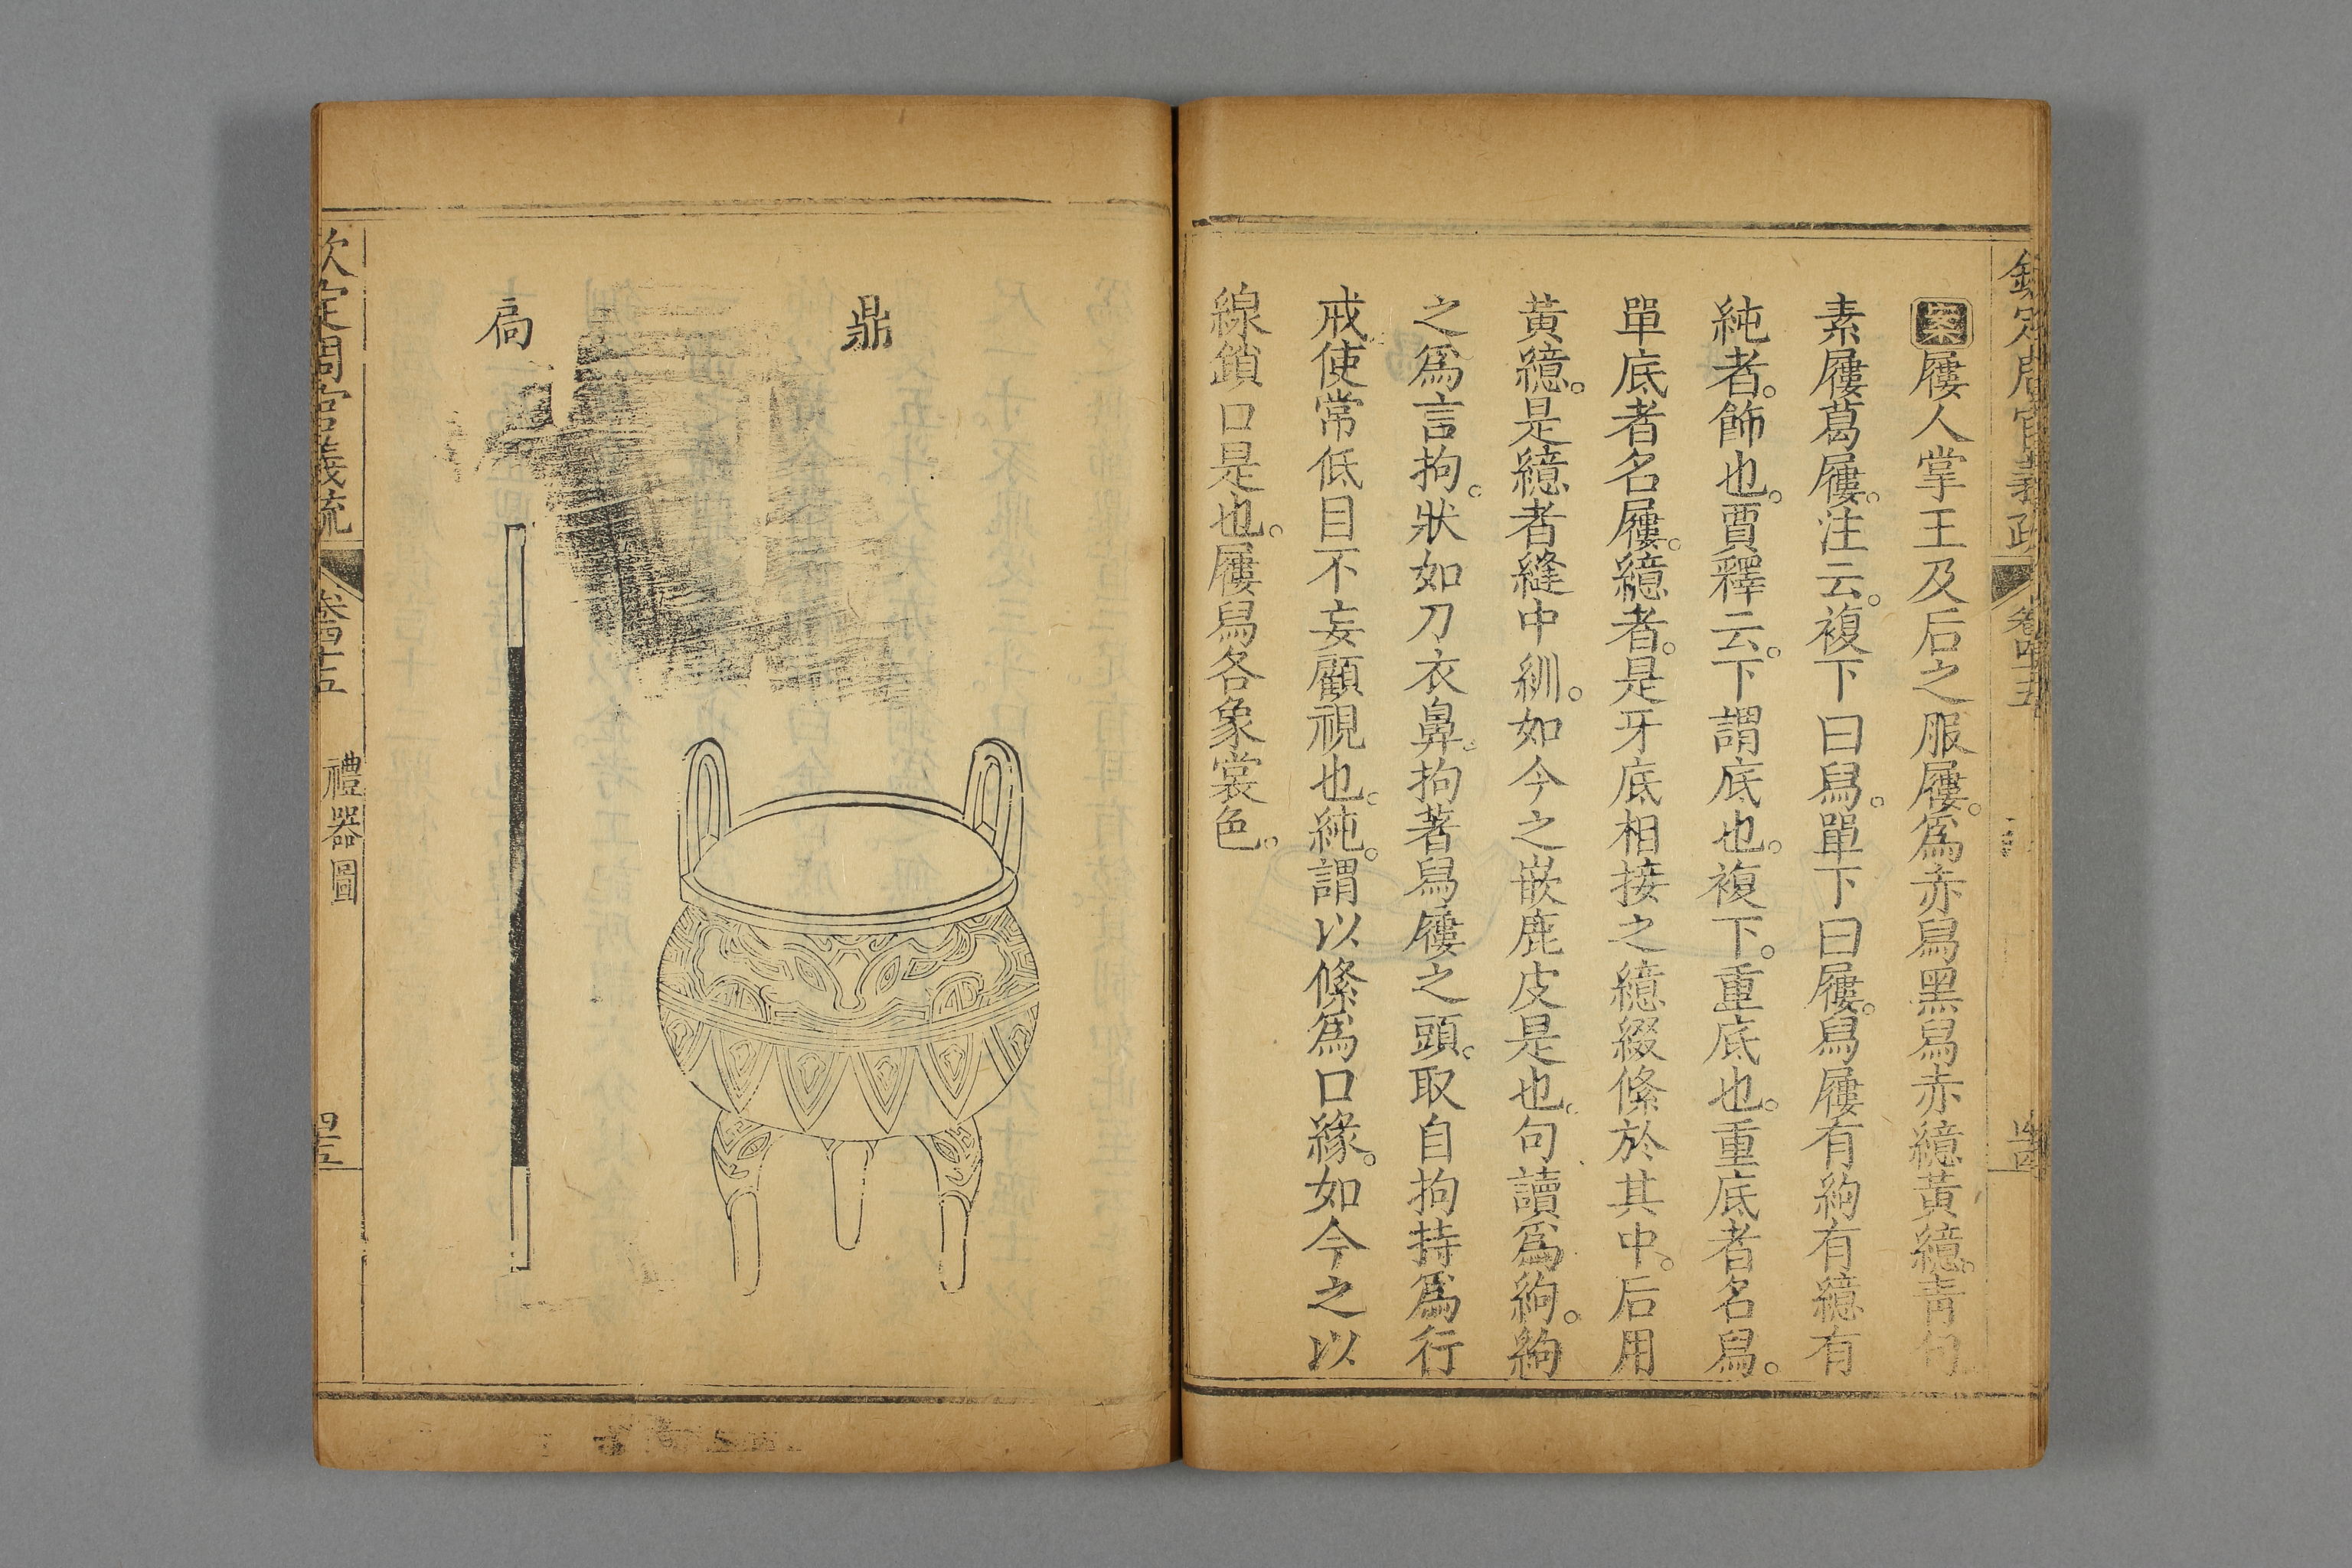 欽定周官義疏 卷四十五
案屨人掌王及后之服屨。爲赤舄黑舄赤繶黃繶。靑句
素屨葛屨。注云。複下曰舄。單下曰屨。舄屨有絇有繶有
純者。飾也。賈釋云。下謂底也。複下。重底也。重底者名舄。
單底者名屨。繶者。是牙底相接之繶綴絛於其中。后用
黃繶。是繶者縫中紃。如今之嵌鹿皮是也。句讀爲絇。絇
之爲言拘。狀如刀衣鼻。拘著舄屨之頭。取自拘持爲行
戒使常低目不妄顧視也。純。謂以絛爲口緣。如今之以
線鎖口是也。屨舄各象裳色。
鼎
扃
欽定周官義疏 卷四十五 禮器圖 四十五